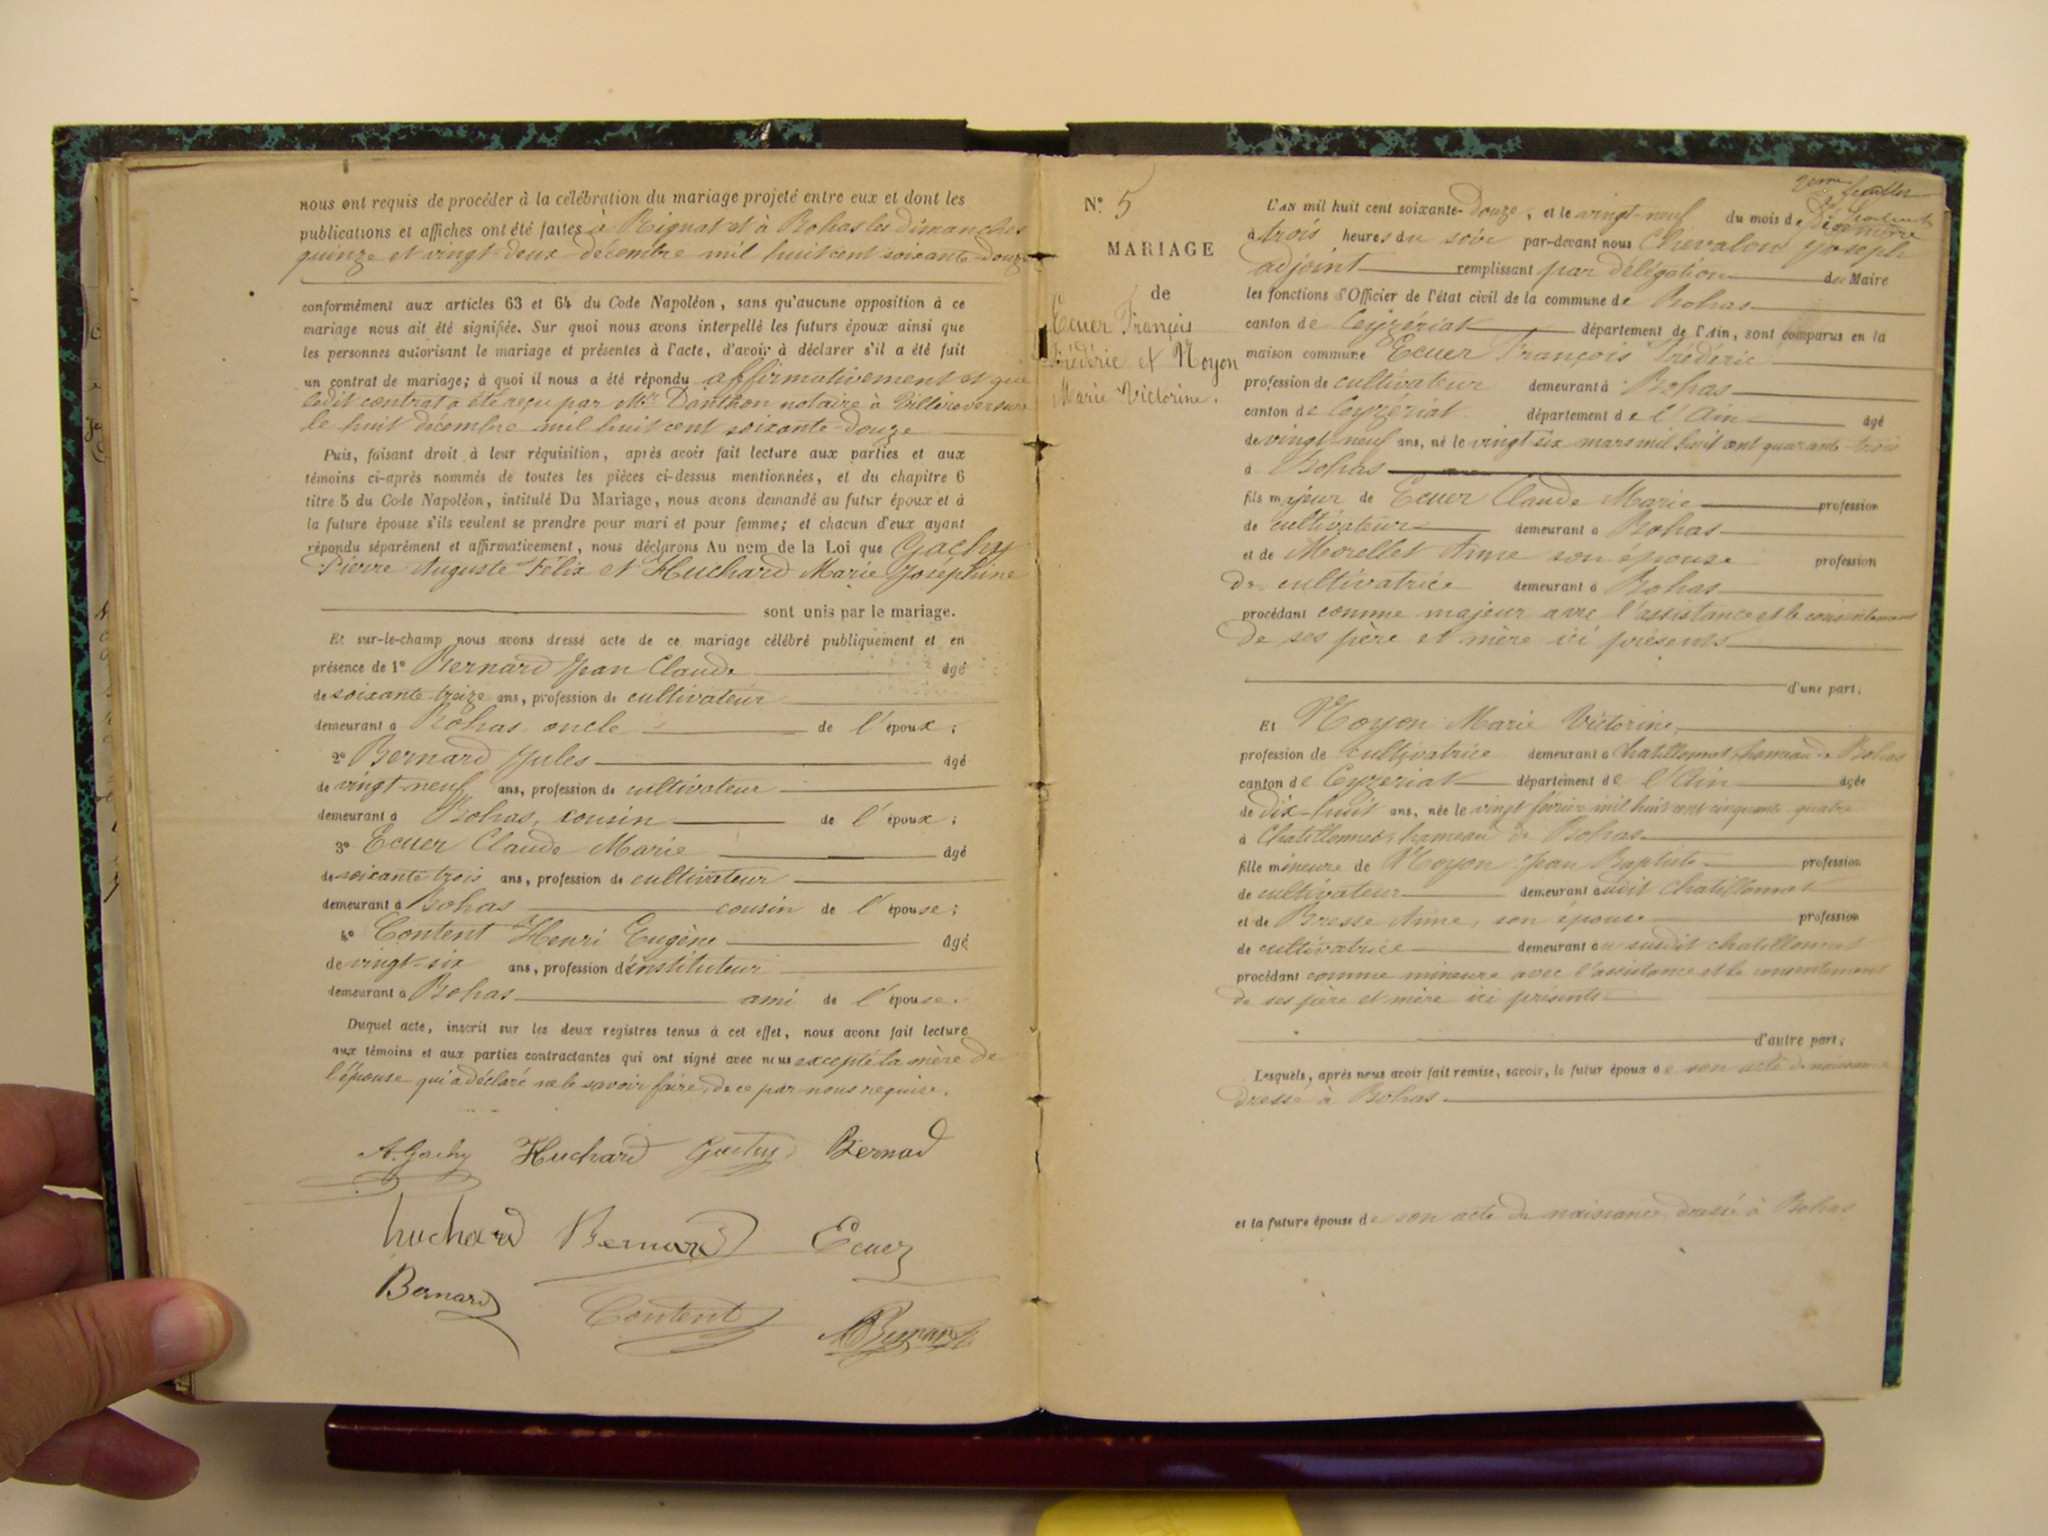 nous ont requis de procéder à la célébration du mariage projeté entre eux et dont les
publications et affiches ont été faites à Rignat et à Bohas les dimanches
quinze et vingt-deux décembre mil huit cent soixante-douze
conformément aux articles 63 et 64 du Code Napoléon, sans qu'aucune opposition à ce
mariage nous ait été signifiée. Sur quoi nous avons interpellé les futurs époux ainsi que
les personnes autorisant le mariage et présentes à l'acte, d'avoir à déclarer s'il a été fait
un contrat de mariage; à quoi il nous a été répondu affirmativement et que
ledit contrat a été reçu par Mre Danthon notaire à Villereversure
le huit décembre mil huit cent soixante-douze
Puis, faisant droit à leur réquisition, après avoir fait lecture aux parties et aux
témoins ci-après nommés de toutes les pièces ci-dessus mentionnées, et du chapitre 6
titre 5 du Code Napoléon, intitulé Du Mariage, nous avons demandé au futur époux et à
la future épouse s'ils veulent se prendre pour mari et pour femme; et chacun d'eux ayant
répondu séparément et affirmativement, nous déclarons Au nom de la Loi que Gachy
Pierre Auguste Félix et Huchard Marie Joséphine
sont unis par le mariage.
Et sur-le-champ nous avons dressé acte de ce mariage célébré publiquement et en
présence de 1° Bernard Jean Claude âgé
de soixante-treize ans, profession de cultivateur
demeurant à Bohas oncle de l'époux;
2° Bernard Jules âgé
de vingt-neuf ans, profession de cultivateur
demeurant à Bohas, cousin de l'époux;
3° Ecuer Claude Marie âgé
de soixante trois ans, profession de cultivateur
demeurant à Bohas cousin de l'épouse;
4° Content Henri Eugène âgé
de vingt-six ans, profession d'instituteur
demeurant à Bohas ami de l'épouse.
Duquel acte, inscrit sur les deux registres tenus à cet effet, nous avons fait lecture
aux témoins et aux parties contractantes qui ont signé avec nous excepté la mère de
l'épouse qui a déclaré ne le savoir faire, de ce par nous requise.
A. Gachy Huchard Gachy Bernad
huchard Bernard Ecuer
Bernard Content
N° 5
MARIAGE
de
Ecuer François
Frédéric et Noyon
Marie Victorine.
L'AN mil huit cent soixante-douze, et le vingt-neuf du mois de Décembre
à trois heures du soir par-devant nous Chevalon Joseph
adjoint remplissant par délégation du Maire
les fonctions d'Officier de l'état civil de la commune de Bohas
canton de Ceyzériat département de l'Ain, sont comparus en la
maison commune Ecuer François Frédéric
profession de cultivateur demeurant à Bohas
canton de Ceyzériat département de l'Ain âgé
de vingt-neuf ans, né le vingt six mars mil huit cent quarante-trois
à Bohas
fils majeur de Ecuer Claude Marie profession
de cultivateur demeurant à Bohas
et de Morellet Anne son épouse profession
de cultivatrice demeurant à Bohas
procédant comme majeur avec l'assistance et le consentement
de ses père et mère ici présents
d'une part;
Et Noyon Marie Victorine
profession de cultivatrice demeurant à Chatillonnet, hameau de Bohas
canton de Ceyzériat département de l'Ain âgée
de dix-huit ans, née le vingt février mil huit cent cinquante-quatre
à Chatillonnet, hameau de Bohas
fille mineure de Noyon Jean Baptiste profession
de cultivateur demeurant audit Chatillonnet
et de Bresse Anne, son épouse profession
de cultivatrice demeurant au susdit chatillonnet
procédant comme mineure avec l'assistance et le consentement
de ses père et mère ici présents
d'autre part;
Lesquels, après nous avoir fait remise, savoir, le futur époux de son acte de naissance
dressé à Bohas
et la future épouse de son acte de naissance dressé à Bohas